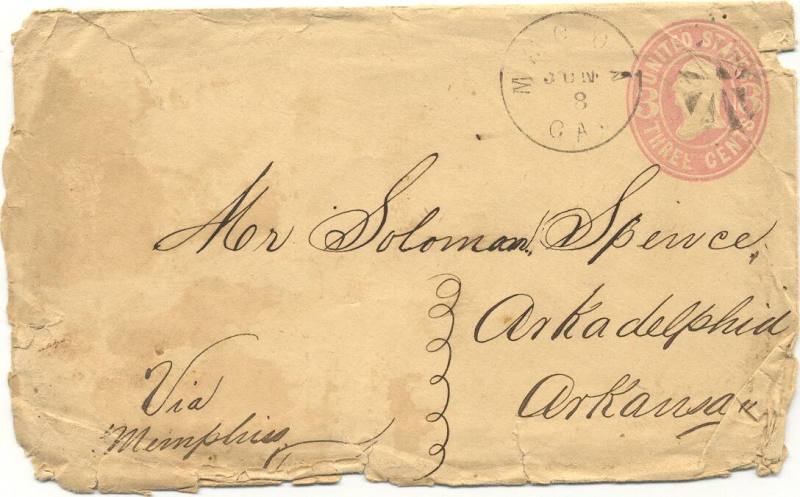 JUN
8
GA.
UNITED STATES
THREE CENTS
Mr Soloman Spence,
Arkadelphia
Arkansas
Via
Memphis